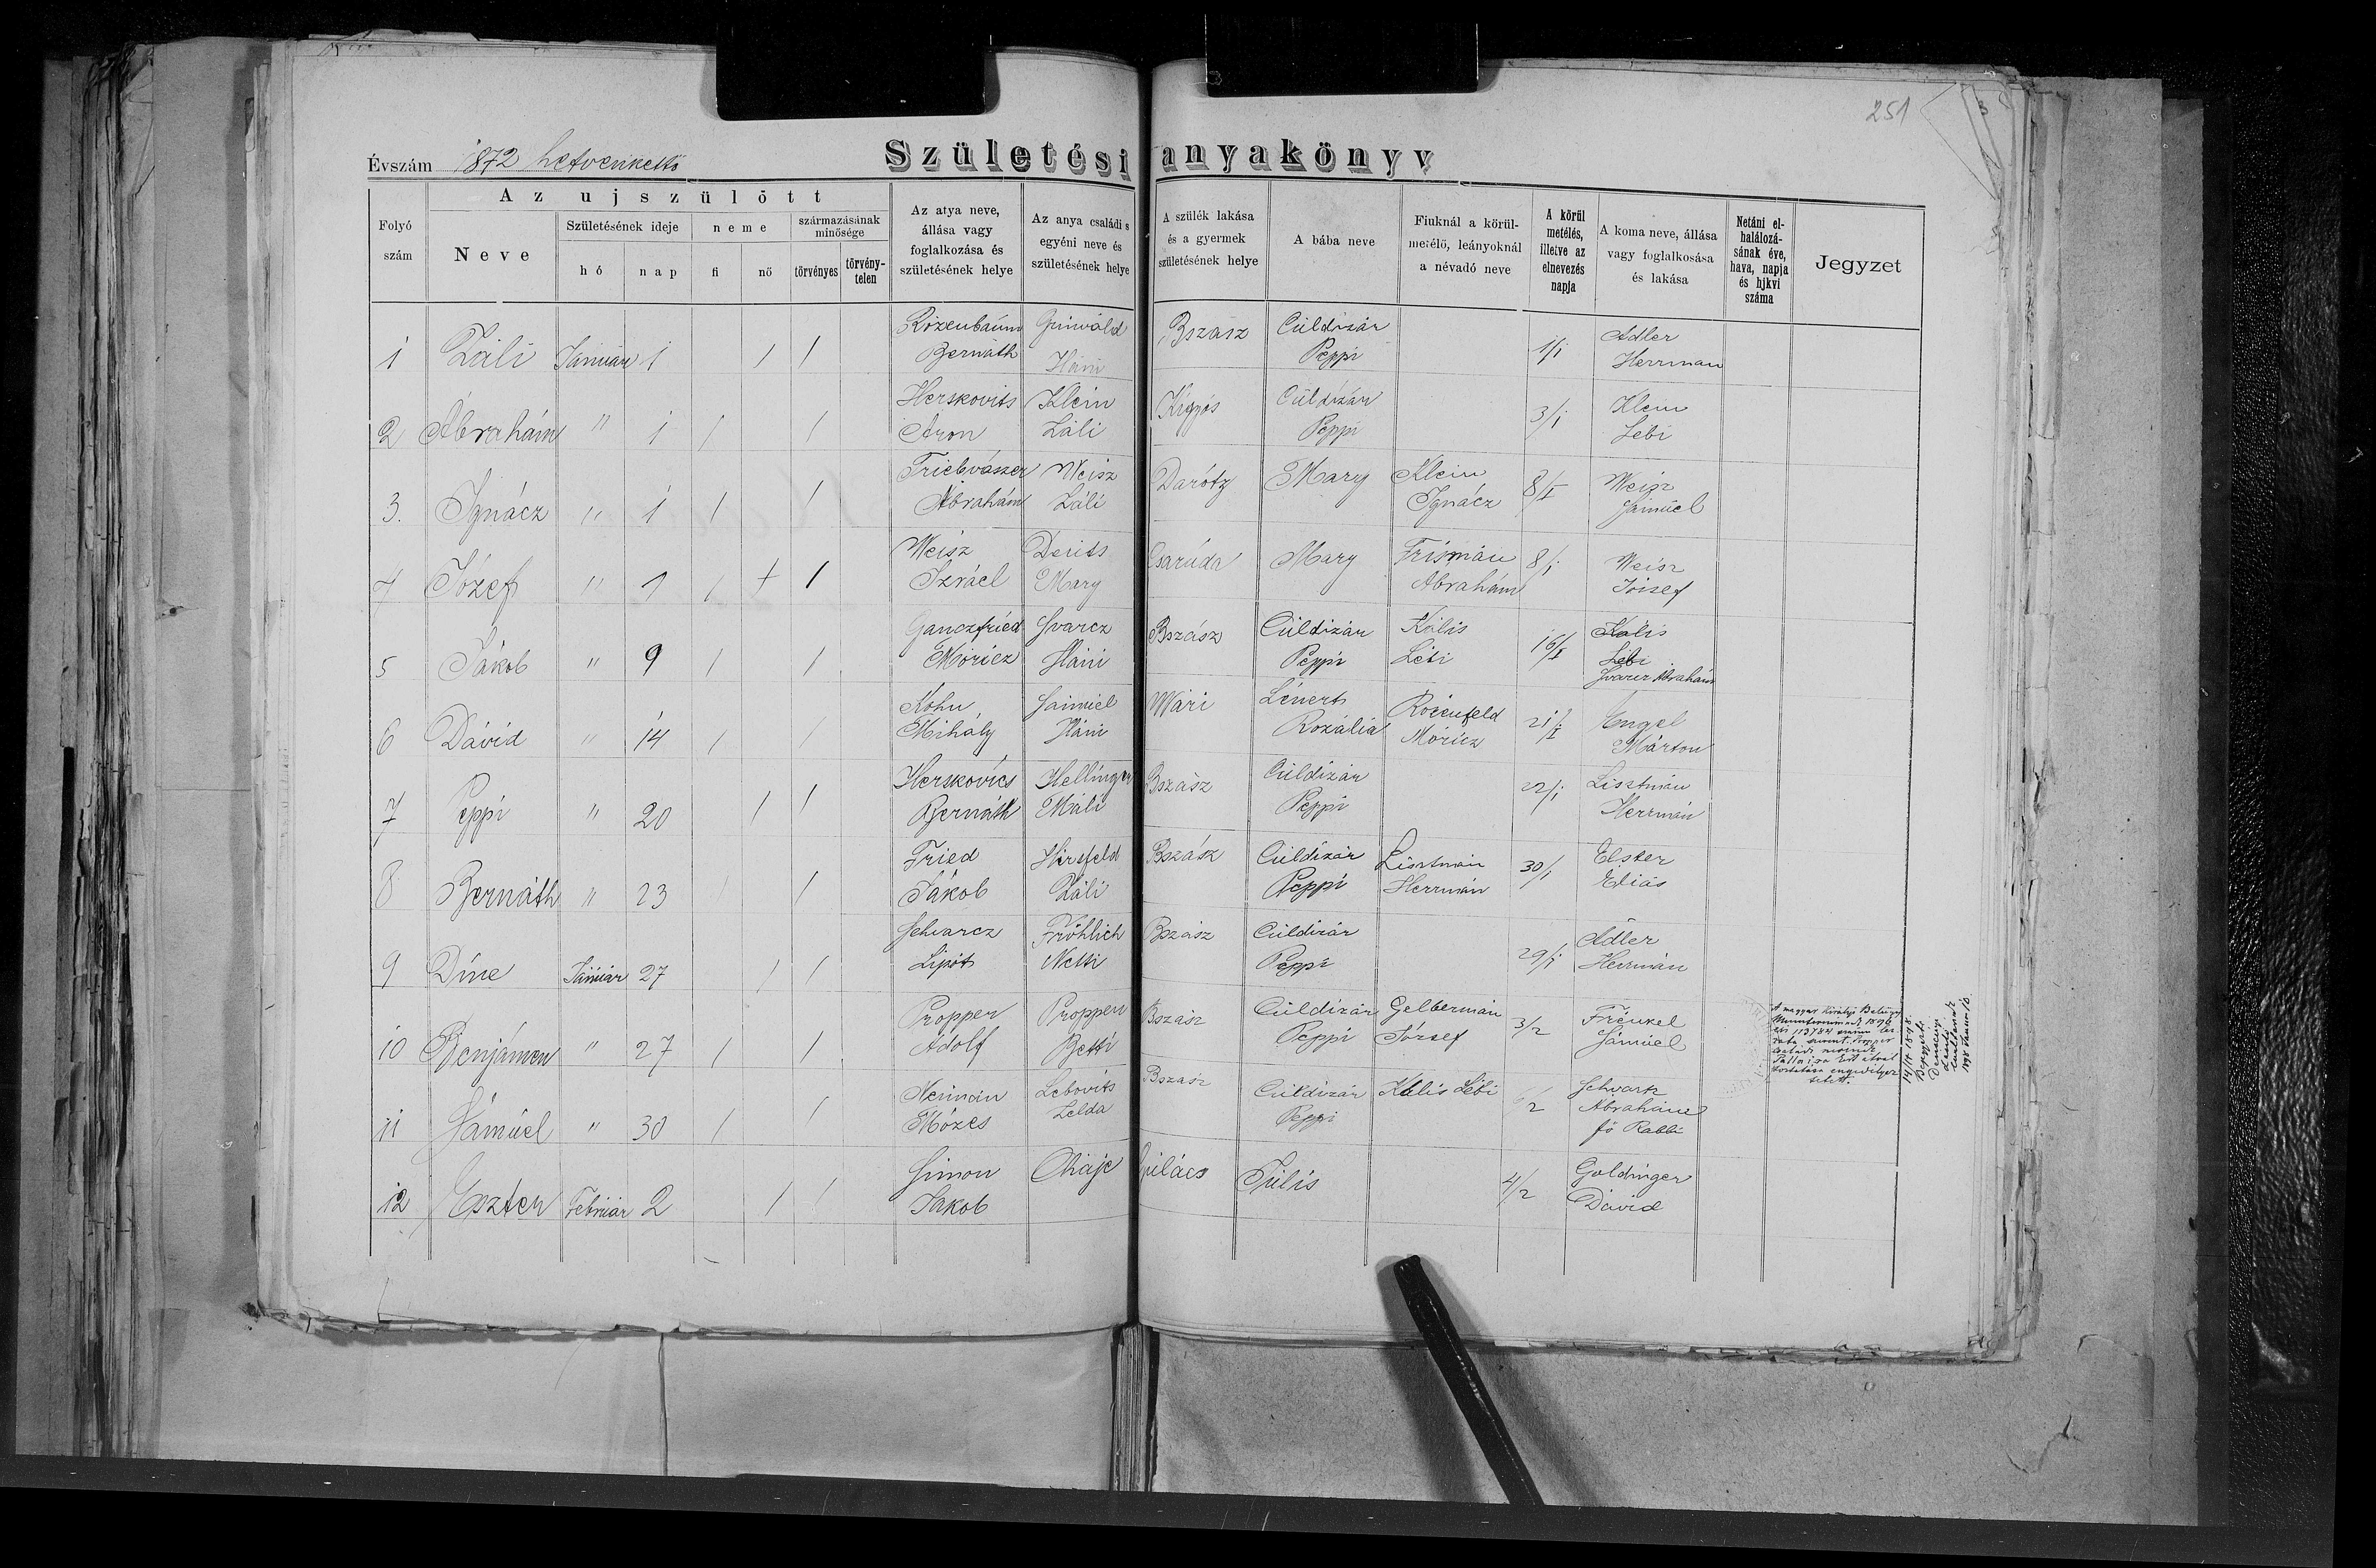 251
3
Évszám 1872 hetvenkettő
Születési anyakönyv
Folyó szám
Az ujszülött
Neve
Születésének ideje
hó
nap
neme
fi
nő
származásának minősége
törvényes
törvénytelen
Az atya neve, állása vagy foglalkozása és születésének helye
Az anya családi s egyéni neve és születésének helye
A szülék lakása és a gyermek születésének helye
A bába neve
Fiuknál a körülmetélő, leányoknál a névadó neve
A körülmetélés, illetve az elnevezés napja
A koma neve, állása vagy foglalkosása és lakása
Netáni elhalálozásának éve, hava, napja és hjkvi száma
Jegyzet
1 Záli Januar 1 / / Rozenbaum Bernáth Grinvald Háni Bszász Cüldizár Peppi 1/i Adler Herrman
2 Ábrahám " 1 / / Herskovits Áron Klein Záli Kígyós Cüldizár Peppi 3/i Klein Lebi
3. Ignácz " 1 / / Friebvászer Ábrahám Weisz Záli Darótz Mary Klein Ignácz 8/I Weisz Sámuel
4 Józef " 1 / + / Weisz Izráel Deuts Mary Csaruda Mary Frismán Abrahám 8/i Weisz József
5 Jákob " 9 / / Ganczfried Móricz Svarcz Háni Bszász Cüldizár Peppi Kális Lébi 16/I Kális Lébi Svarcz Ábrahám
6 Dávid " 14 / / Kohn Mihály Sámuel Háni Mári Lénert Rozália Rozenfeld Móricz 21/I Engel Márton
7 Peppi " 20 / / Herskovics Bernáth Hellinger Máli Bszász Cüldizár Peppi 22/i Lisztmán Herrmán
8 Bernáth " 23 / / Fried Jákob Hirsfeld Záli Bszász Cüldizár Peppi Lisztmán Herrmán 30/1 Elster Éliás
9 Dine Januar 27 / / Schvarcz Lipót Fröhlich Netti Bszász Cüldizár Peppi 29/i Adler Herrmán
10 Benjámen " 27 / / Propper Adolf Propper Betti Bszász Cüldizár Peppi Gelbermán József 3/2 Frenkel Sámuel
A magyar Királyi Belügy
1898
14/IV 1898.
11 Sámuel " 30 / / Neiman Mózes Lebovits Zelda Bszász Cüldizár Peppi Kális Lébi 6/2 Schvartz Abrahám fő Rabbi
12 Eszter Februar 2 / / Simon Jakob Chaje Gulács Julis 4/2 Goldinger Dávid